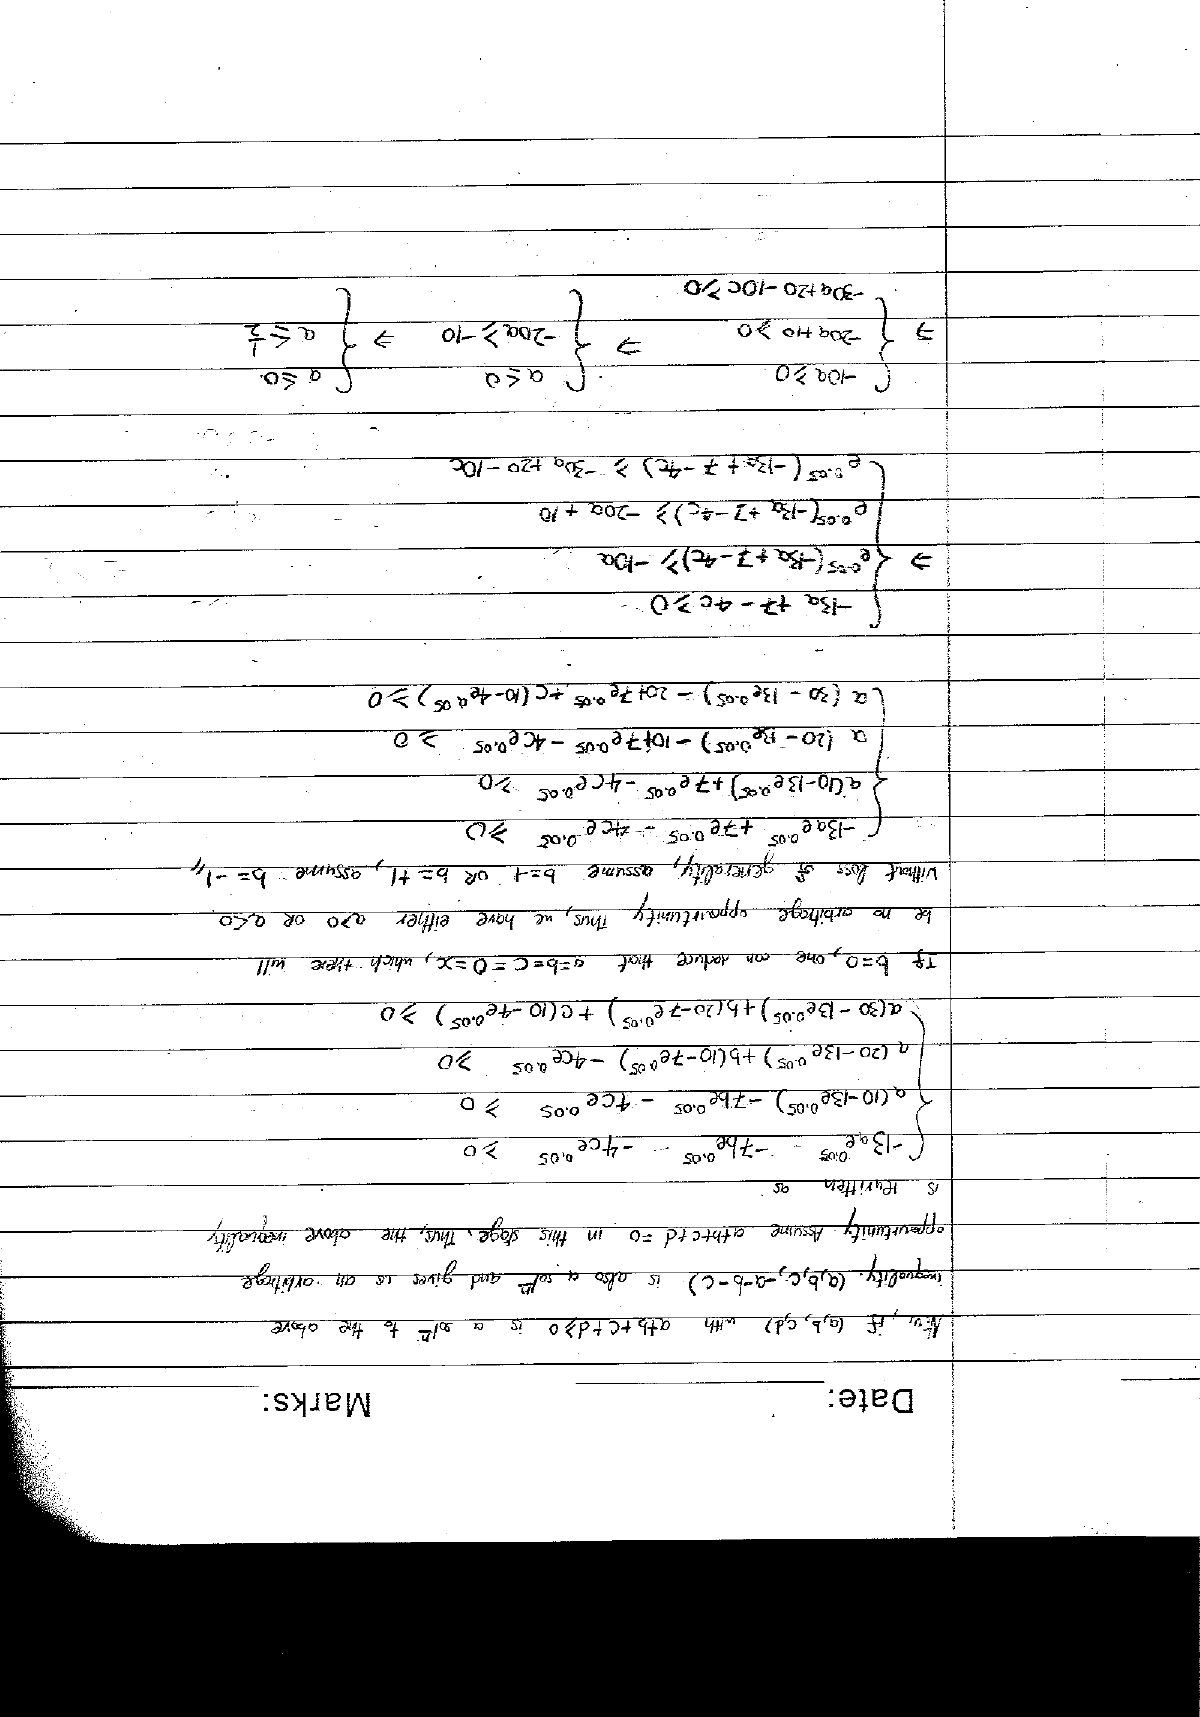 Date: Marks:
Now, if (a,b,c,d) with a+b+c+d≥0 is a solⁿ to the above
inequality. (a,b,c,-a-b-c) is also a solⁿ and gives us an arbitrage
opportunity Assume a+b+c+d=0 in this stage. Thus, the above inequality
is rewritten as
{ -13ae^0.05 - 7be^0.05 - 4ce^0.05 ≥0
a(10-13e^0.05) -7be^0.05 - 4ce^0.05 ≥0
a(20-13e^0.05)+b(10-7e^0.05) -4ce^0.05 ≥0
a(30-13e^0.05)+b(20-7e^0.05) + c(10-4e^0.05) ≥0
If b=0, one can deduce that a=b=c=0=x, which there will
be no arbitrage opportunity. Thus, we have either a>0 or a<0
Without loss of generality, assume b=-1 OR b=+1, assume b=-1,,
{ -13ae^0.05 +7e^0.05 - 4ce^0.05 ≥0
a(10-13e^0.05)+7e^0.05 -4ce^0.05 ≥0
a(20-13e^0.05) -10+7e^0.05 -4ce^0.05 ≥0
a(30-13e^0.05) -20+7e^0.05 +c(10-4e^0.05) ≥0
{ -13a+7-4c≥0
⇒ e^0.05(-13a+7-4c)≥ -10a
e^0.05(-13a+7-4c)≥ -20a+10
e^0.05(-13a+7-4c) ≥ -30a+20-10c
{ -10a≥0 { a≤0 { a≤0
⇒ -20a+10≥0 ⇒ -20a≥-10 ⇒ a≤1/2
-30a+20-10c≥0